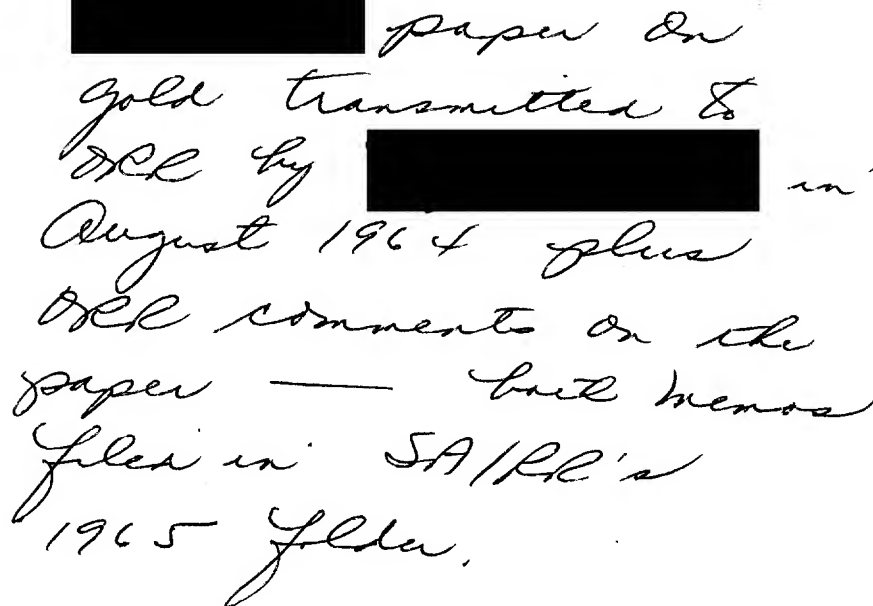 paper on
gold transmitted to
ORR by in
August 1964 plus
ORR comments on the
paper — both memos
filed in SA/RR's
1965 folder.